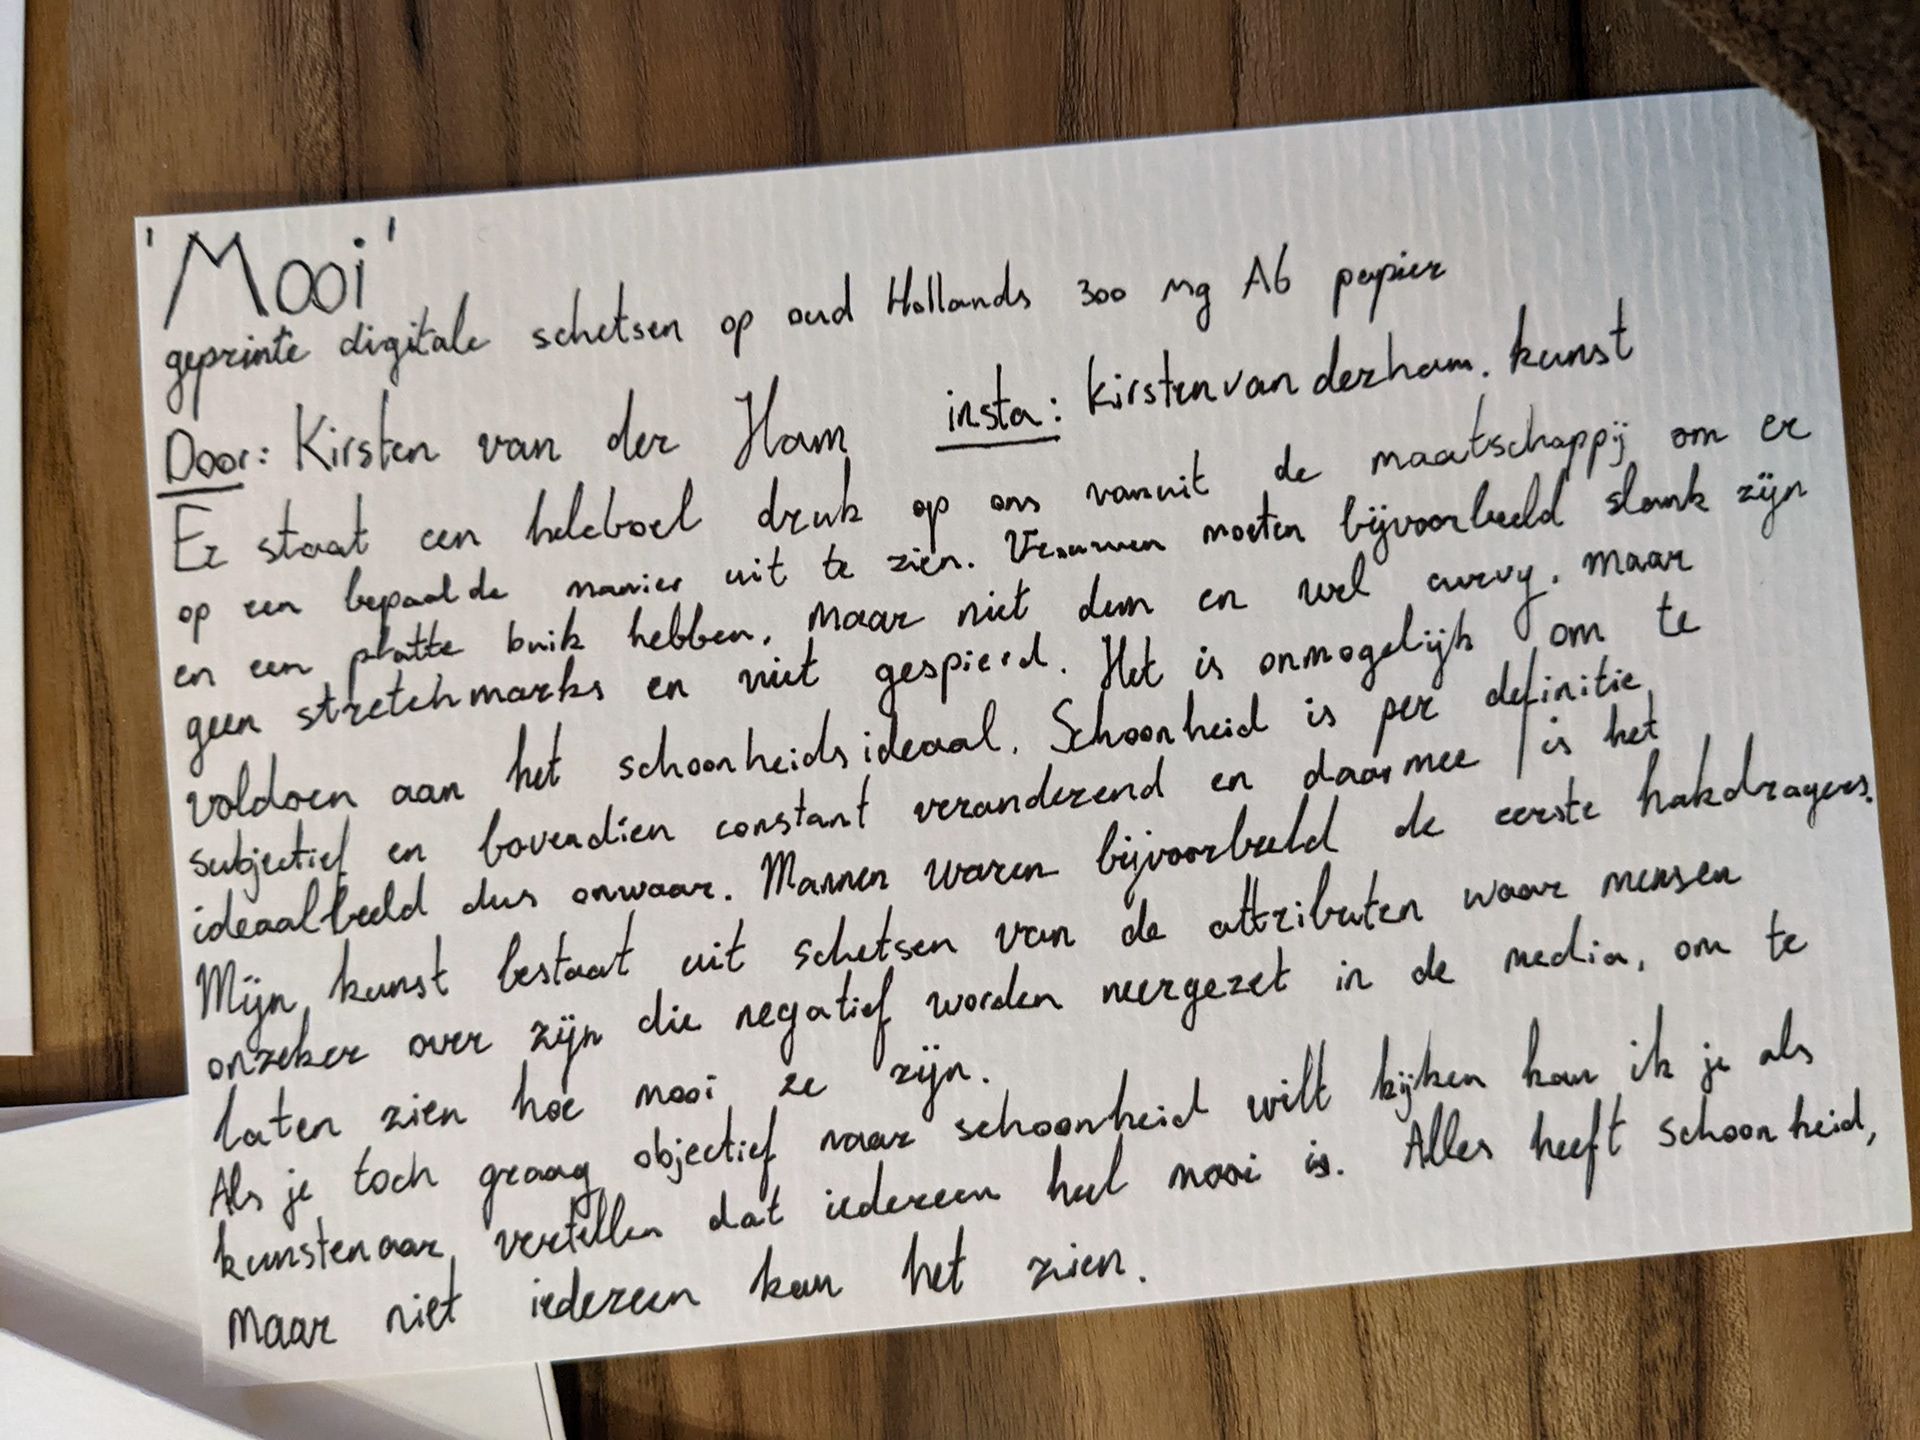 'Mooi'
geprinte digitale schetsen op oud Hollands 300 mg A6 papier
Door: Kirsten van der Ham insta: kirstenvanderham.kunst
Er staat een heleboel druk op ons vanuit de maatschappij om er
op een bepaalde manier uit te zien. Vrouwen moeten bijvoorbeeld slank zijn
en een platte buik hebben, maar niet dun en wel curvy. Maar
geen stretchmarks en niet gespierd. Het is onmogelijk om te
voldoen aan het schoonheidsideaal. Schoonheid is per definitie
subjectief en bovendien constant veranderend en daarmee is het
ideaalbeeld dus onwaar. Mannen waren bijvoorbeeld de eerste hakdragers.
Mijn kunst bestaat uit schetsen van de attributen waar mensen
onzeker over zijn die negatief worden neergezet in de media, om te
laten zien hoe mooi ze zijn.
Als je toch graag objectief naar schoonheid wilt kijken kan ik je als
kunstenaar vertellen dat iedereen heel mooi is. Alles heeft schoonheid,
maar niet iedereen kan het zien.